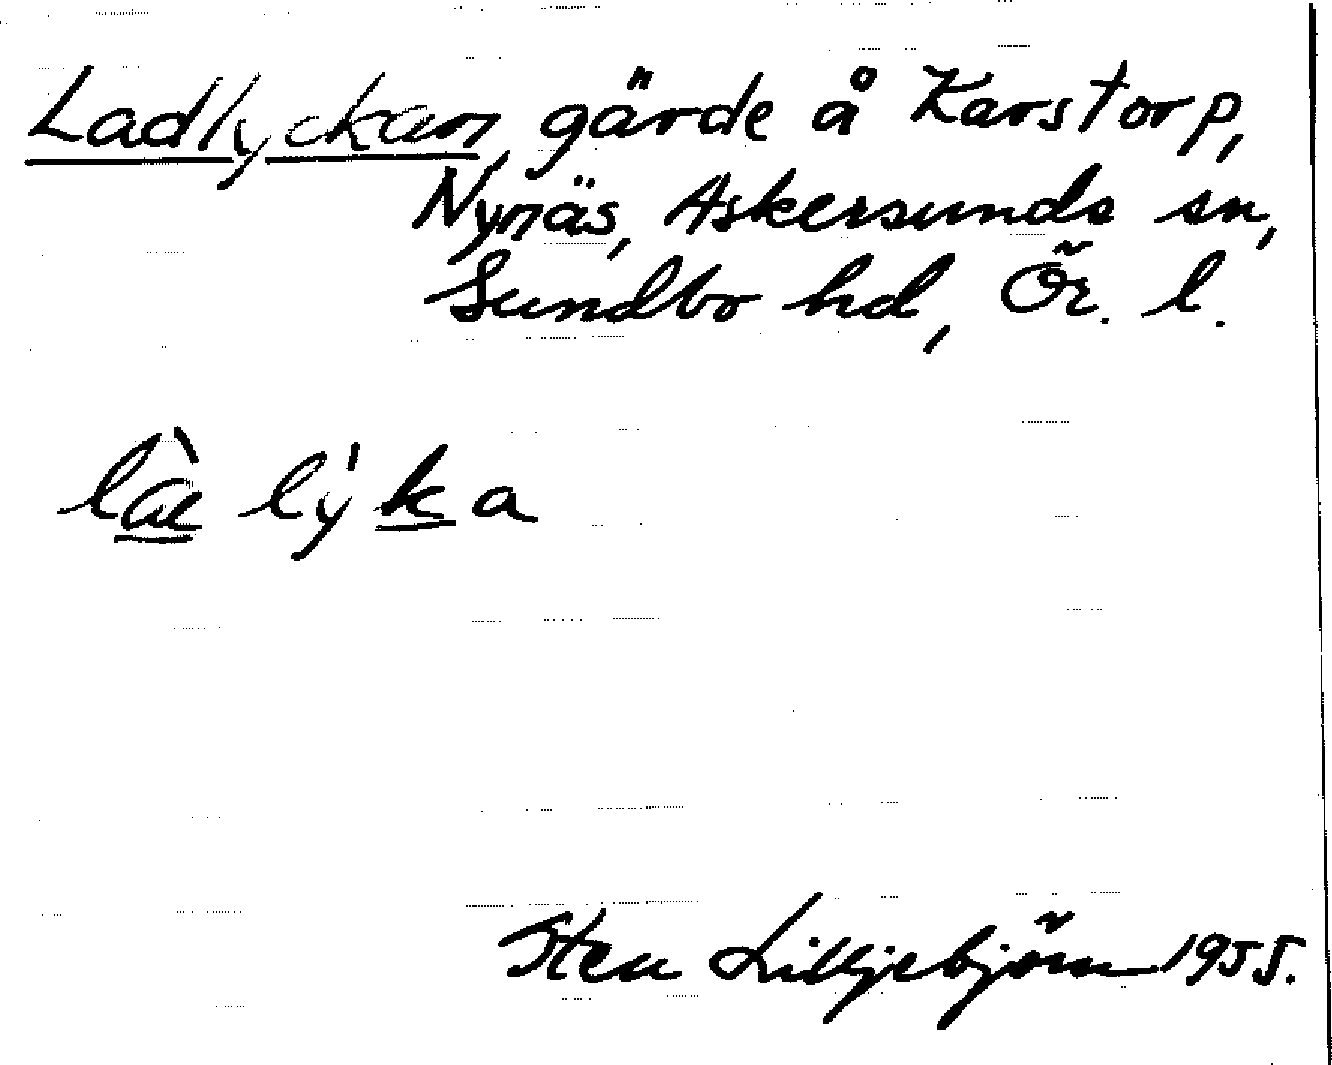 Ladlyckan, gärde å Karstorp,
Nynäs, Askersunds sn,
Sundbo hd, Ör. l.
là lýka
Sten Lilljebjörn 1955.